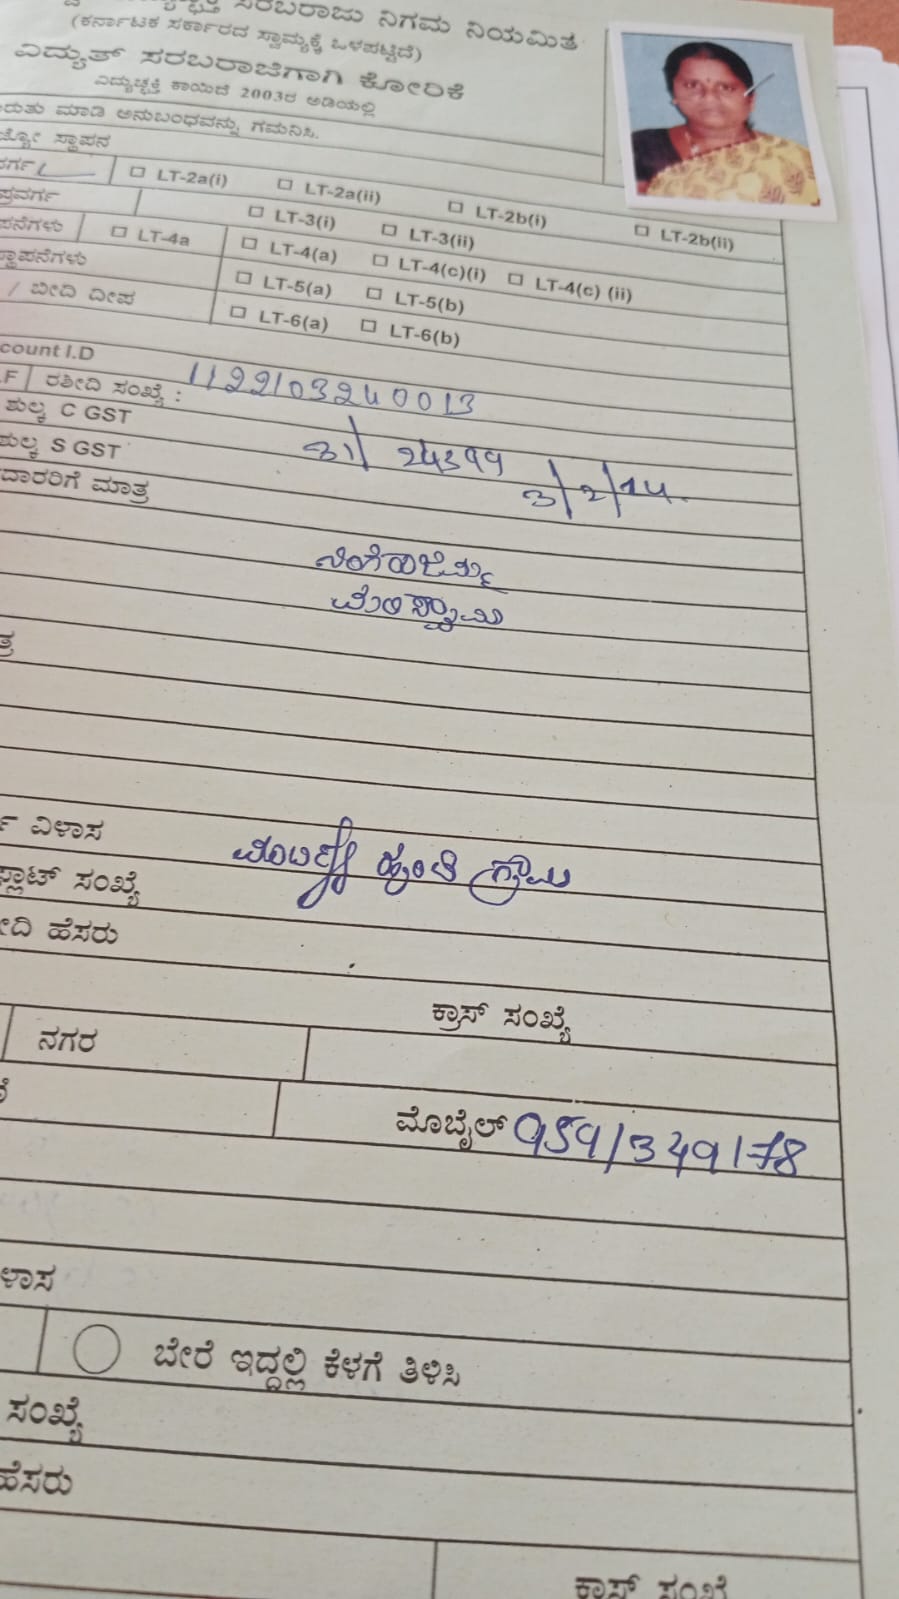 ಸರಬರಾಜು ನಿಗಮ ನಿಯಮಿತ
(ಕರ್ನಾಟಕ ಸರ್ಕಾರದ ಸ್ವಾಮ್ಯಕ್ಕೆ ಒಳಪಟ್ಟಿದೆ)
ವಿದ್ಯುತ್ ಸರಬರಾಜಿಗಾಗಿ ಕೋರಿಕೆ
ವಿದ್ಯುಚ್ಛಕ್ತಿ ಕಾಯಿದೆ 2003ರ ಅಡಿಯಲ್ಲಿ
ಮಾಡಿ ಅನುಬಂಧವನ್ನು ಗಮನಿಸಿ.
ಸ್ಥಾಪನ
☐ LT-2a(i) ☐ LT-2a(ii) ☐ LT-2b(i) ☐ LT-2b(ii)
☐ LT-3(i) ☐ LT-3(ii)
☐ LT-4a ☐ LT-4(a) ☐ LT-4(c)(i) ☐ LT-4(c) (ii)
☐ LT-5(a) ☐ LT-5(b)
/ ಬೀದಿ ದೀಪ ☐ LT-6(a) ☐ LT-6(b)
count I.D
F ರಶೀದಿ ಸಂಖ್ಯೆ : 1122103240013
ಶುಲ್ಕ C GST
ಶುಲ್ಕ S GST 24399
ದಾರರಿಗೆ ಮಾತ್ರ
ವಿಳಾಸ
ಪ್ಲಾಟ್ ಸಂಖ್ಯೆ ಗ್ರಾಮ
ಹೆಸರು
ಕ್ರಾಸ್ ಸಂಖ್ಯೆ
ನಗರ
ಮೊಬೈಲ್ 9591349178
ಳಾಸ
ಬೇರೆ ಇದ್ದಲ್ಲಿ ಕೆಳಗೆ ತಿಳಿಸಿ
ಸಂಖ್ಯೆ
ಹೆಸರು
ಕ್ರಾಸ್ ಸಂಖ್ಯೆ